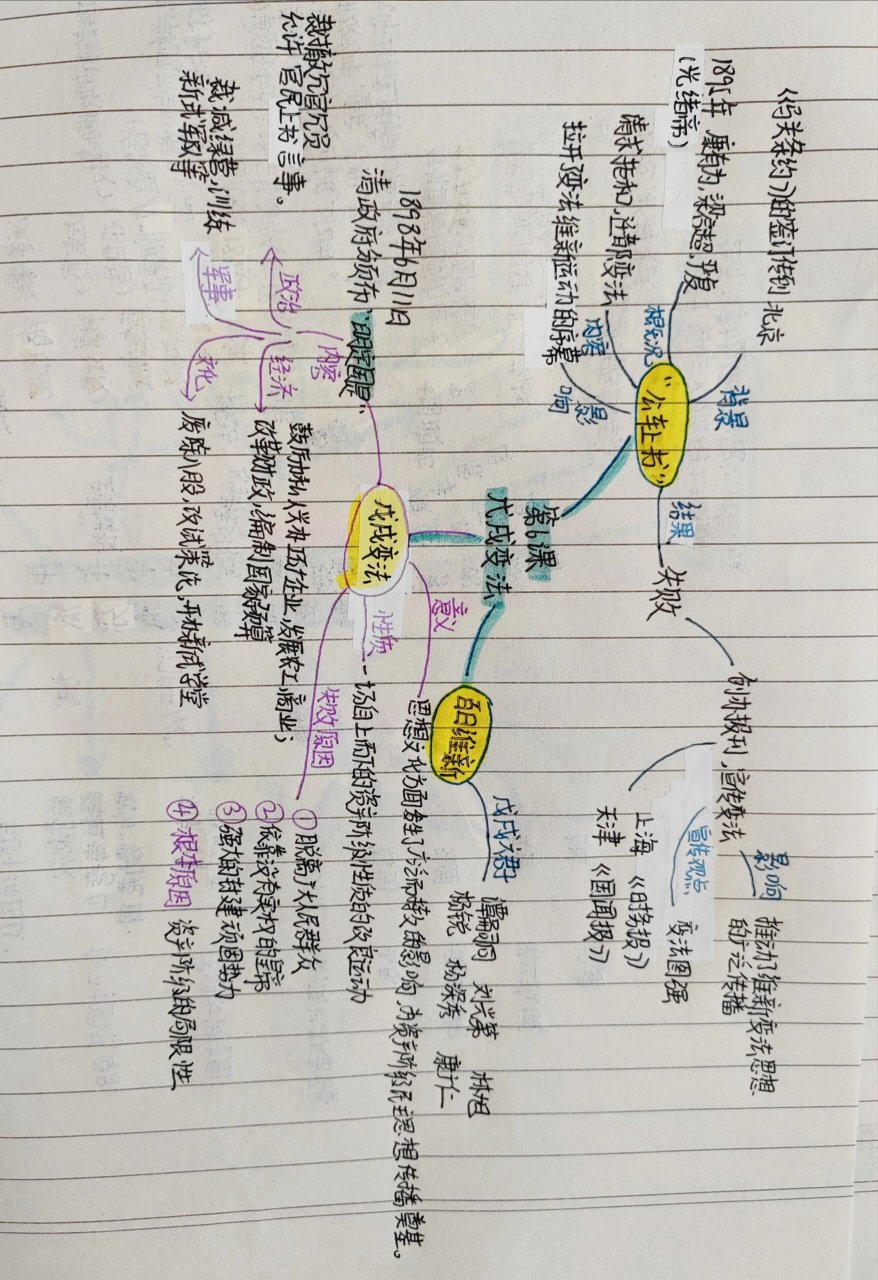 第6课
戊戌变法
“公车上书”
背景
《马关条约》的签订传到北京
概况
1895年 康有为,梁启超,严复
(光绪帝)
内容
请求拒和,迁都变法
影响
拉开了变法维新运动的序幕
结果
失败
创办报刊,宣传变法
影响
推动了维新变法思想
的广泛传播
宣传观点
变法图强
上海 《时务报》
天津 《国闻报》
百日维新
戊戌六君子
谭嗣同 刘光第 林旭
杨锐 杨深秀 康广仁
戊戌变法
1898年6月11日
清政府颁布“明定国是”
内容
政治
裁撤冗官冗员
允许官民上书言事。
军事
裁减绿营,训练
新式军队等
经济
鼓励私人兴办工矿企业,发展农工商业;
改革财政,编制国家预算
文化
废除八股,改试策论,开办新式学堂
意义
思想文化方面发生了广泛而持久的影响,为资产阶级民主思想传播奠基。
性质
一场自上而下的资产阶级性质的改良运动
失败原因
① 脱离广大人民群众
② 依靠没有实权的皇帝
③ 强大的封建顽固势力
④ 根本原因 资产阶级的局限性